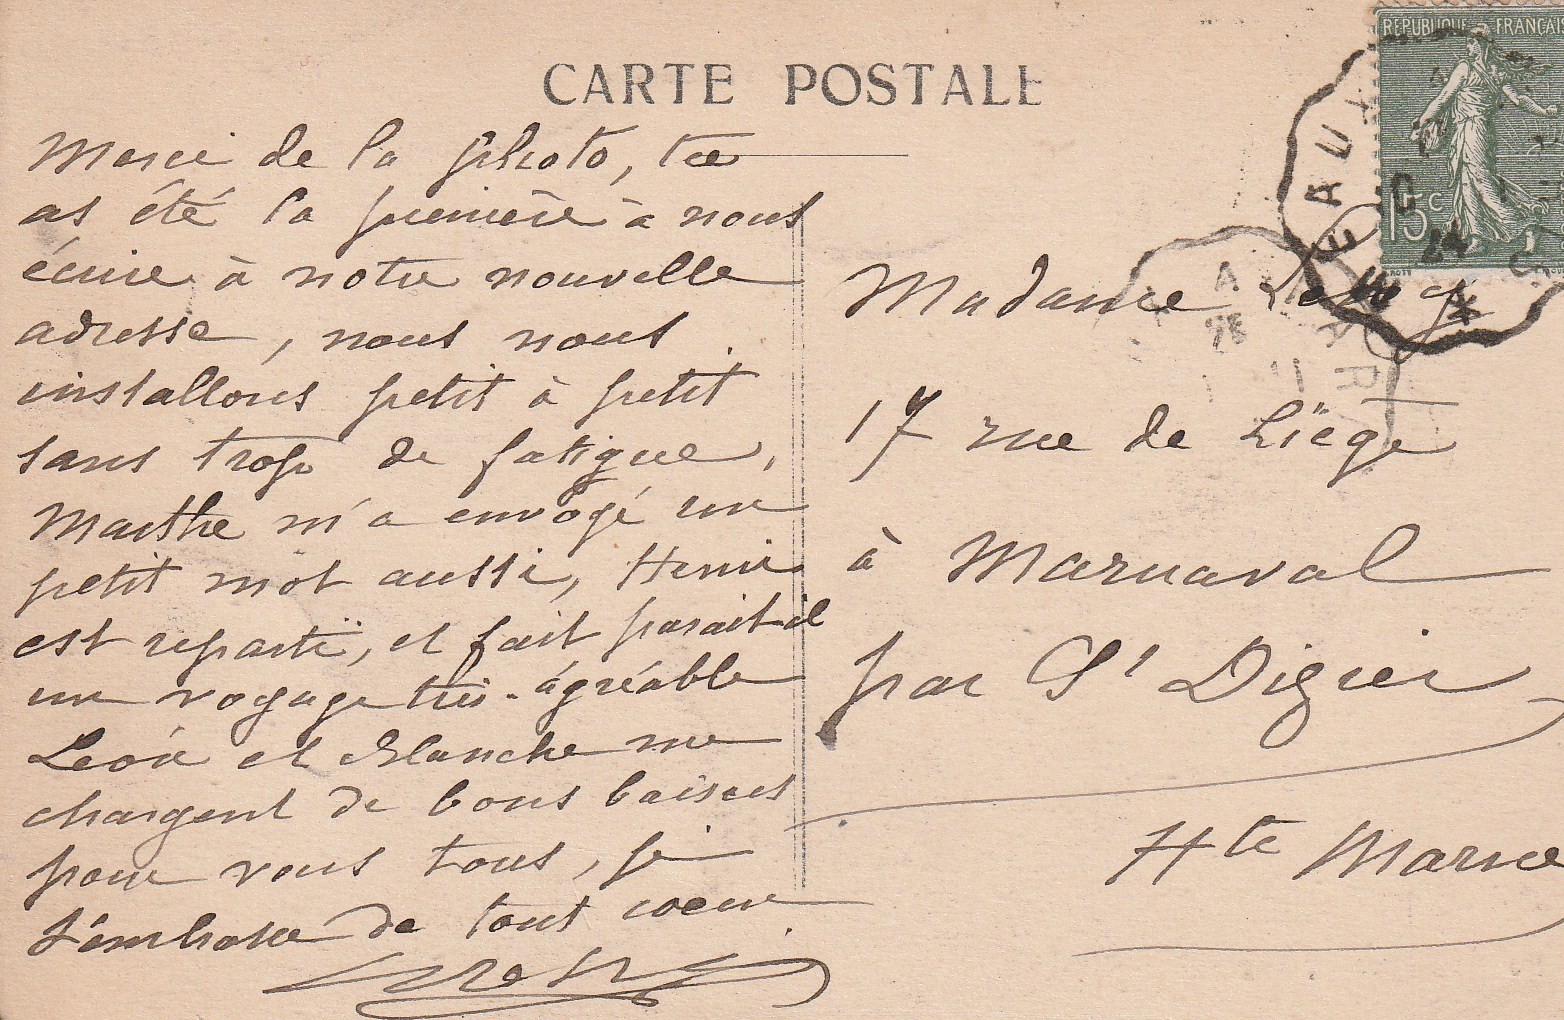 CARTE POSTALE
Merci de la photo, tu
as été la première à nous
écrire à notre nouvelle
adresse, nous nous
installons petit à petit
sans trop de fatigue,
Marthe m'a envoyé un
petit mot aussi, Henri
est reparti, et fait parait-il
un voyage très-agréable
Léon et Blanche me
chargent de bons baisers
pour vous tous, je
t'embrasse de tout coeur
REPUBLIQUE FRANÇAISE
15c
Madame
17 rue de Liège
à Marnaval
par St Dizier
Hte Marne